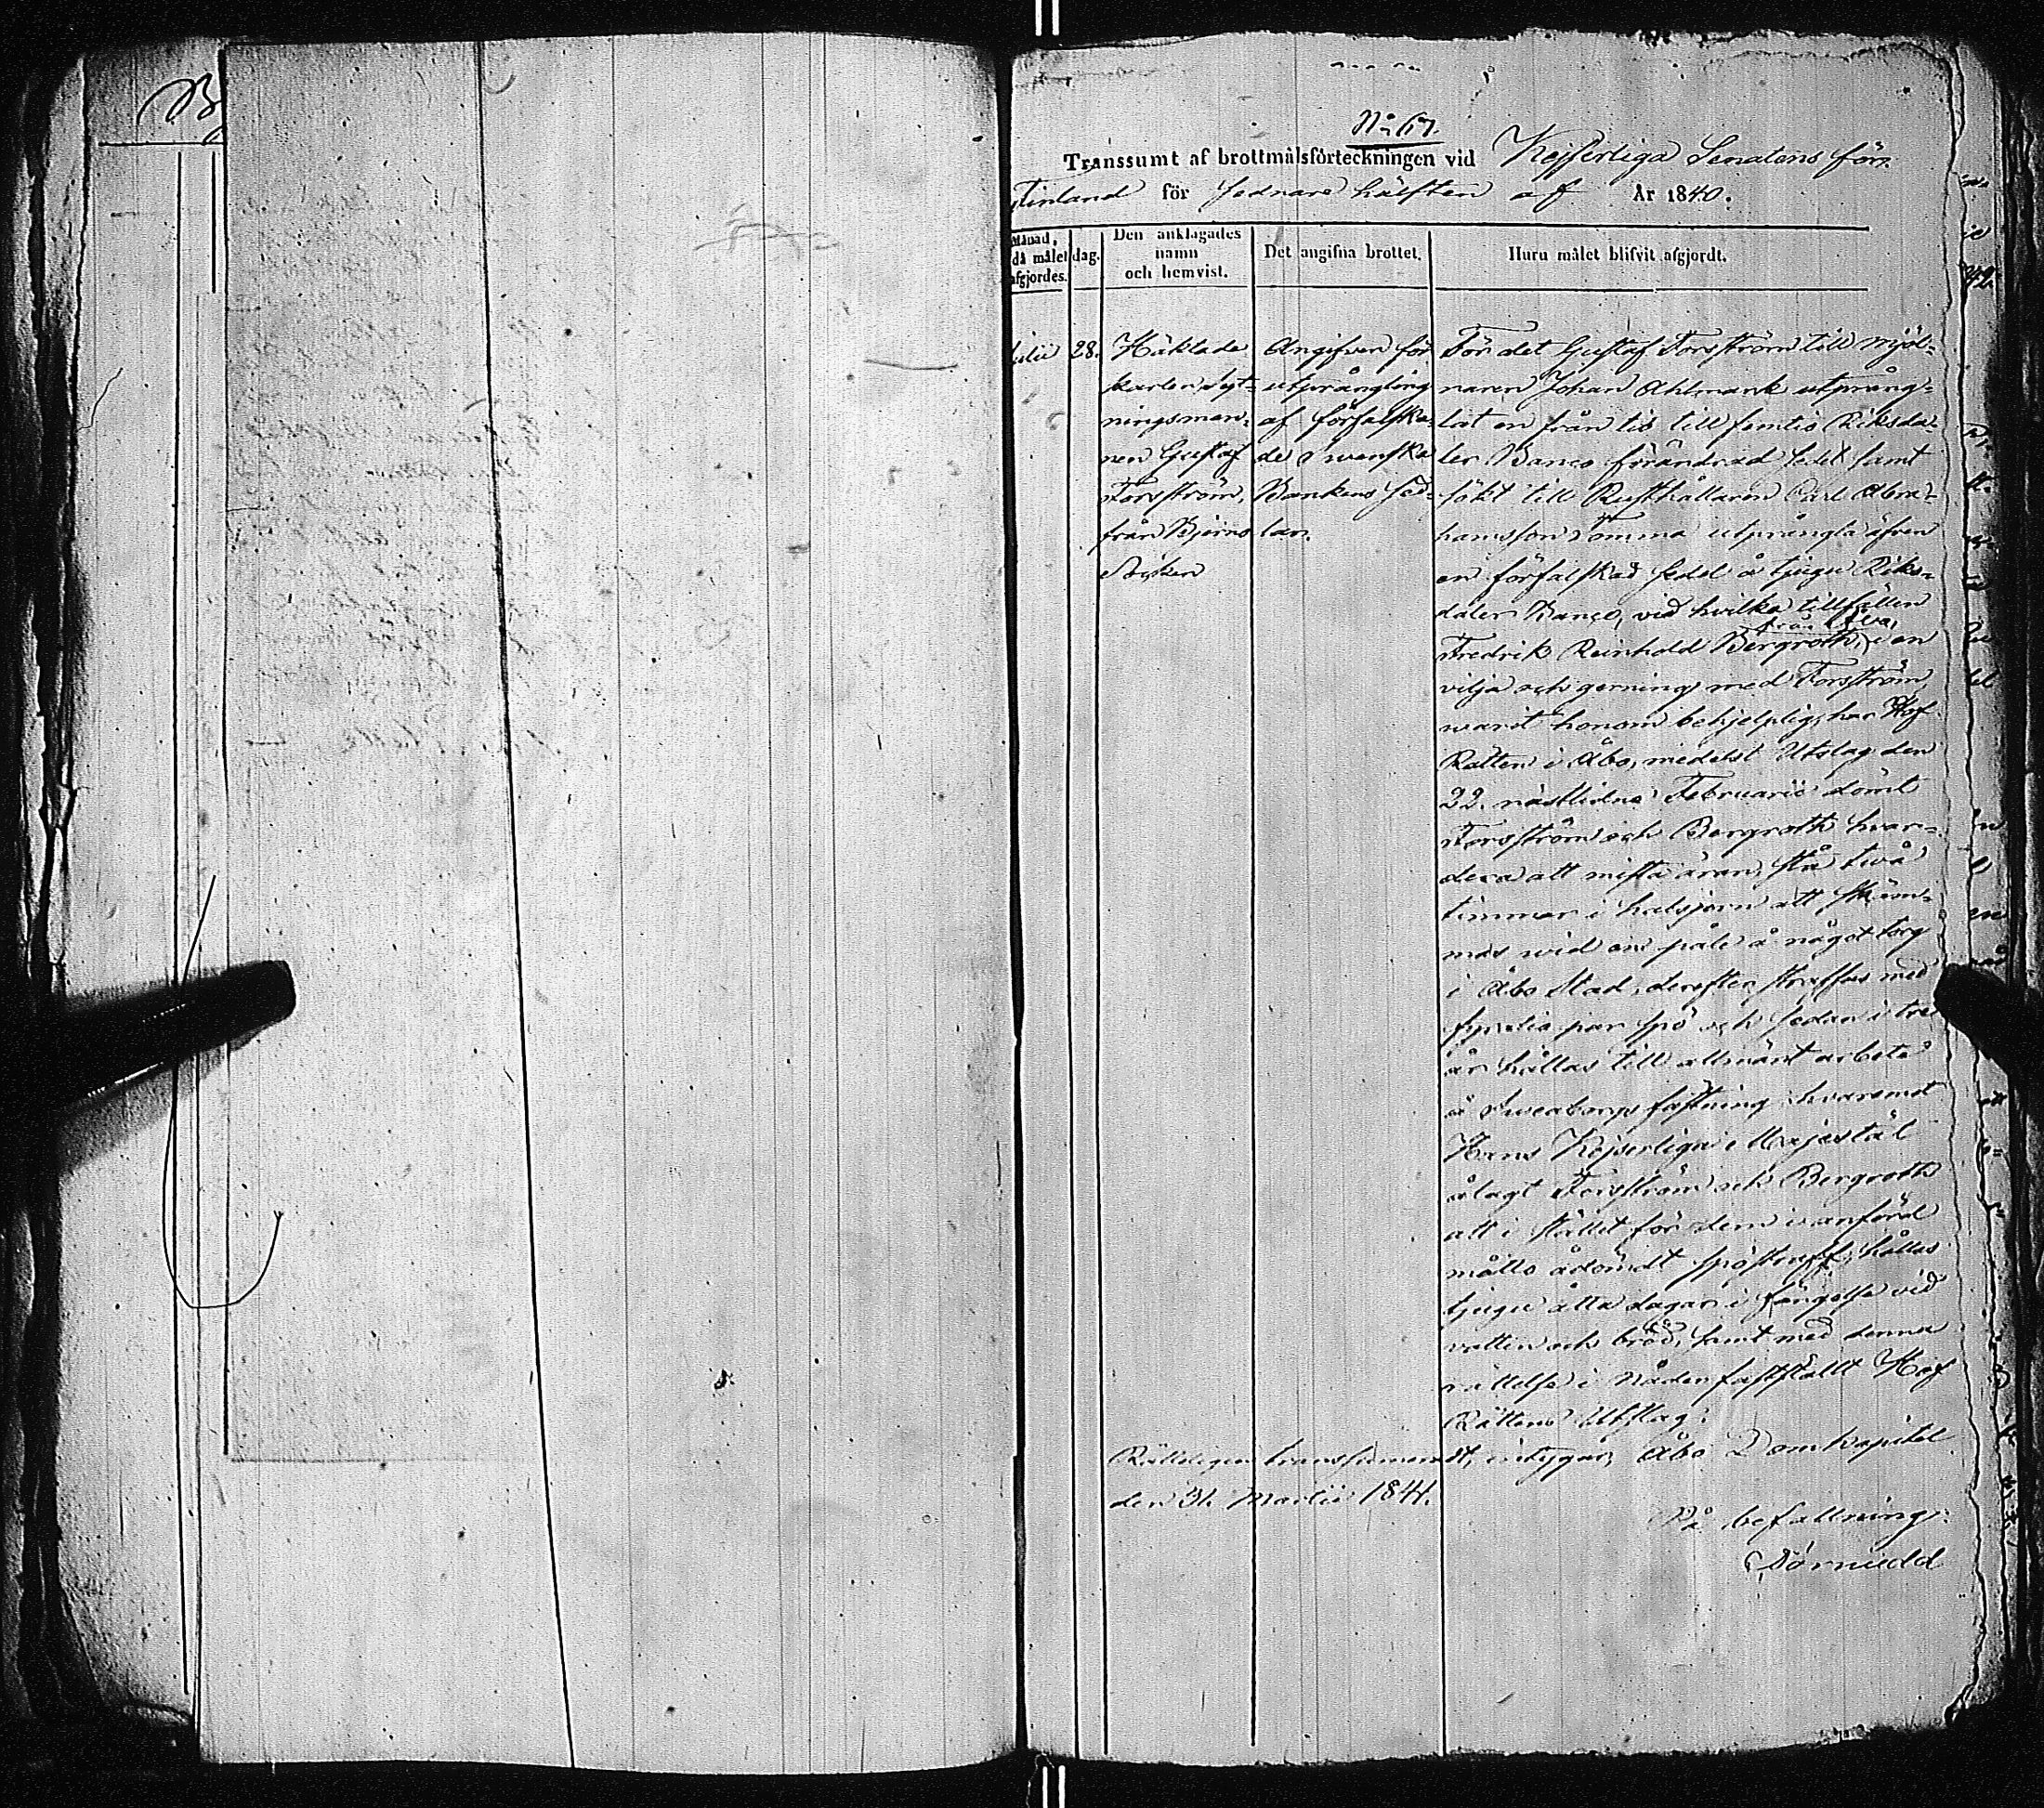 No 67.
Transsumt af brottmålsförteckningen vid Kejserliga Senatens för
Finland för sednare hälften af År 1840.
Månad, då målet afgjordes.
dag.
Den anklagades
namn
och hemvist.
Det angifna brottet.
Huru målet blifvit afgjordt.
Julii 28.
Häktade
karlen
ningsman-
nen Gustaf
Forsström,
från Bjerno
Socken
Angifven för
utprångling
af förfalska-
de Svenska
Bankens Sed-
lar.
För det Gustaf Forsström till mjöl-
naren Johan Ahlmark utpräng-
lat en från tio till femtio Riksda-
ler Banco förändrad sedel samt
sökt till Rusthållaren Carl Abra-
hamsson i utprångla äfven
en förfalskad sedel å tjugu Riks-
daler Banco, vid hvilka tillfällen
Fredrik Reinhold Bergroth, från i en
vilja och gerning med Forsström
warit honom behjelplig, har Hof
Rätten i Åbo, medelst Utslag den
22. nästledne Februarii dömt
Forsström och Bergroth hvar-
dera att mista äran, stå två
timmar i halsjern att skäm-
mas wid en påle å något torg
i Åbo Stad, derefter straffas med
fyratio par spö och sedan i tre
år hållas till allmänt arbete
å Sveaborgs fästning; hvaremot
Hans Kejserliga Majestät
ålagt Forsström och Bergroth
att i stället för dem i anförd
måtto ådömdt spöstraff, hållas
tjugu åtta dagar i fängelse vid
vatten och bröd, samt med denna
rättelse i Nåder fastställt Hof
Rättens Utslag.
Rätteligen transsumeradt, intygar, Åbo Domkapitel
den 31. Martii 1841.
På befallning: